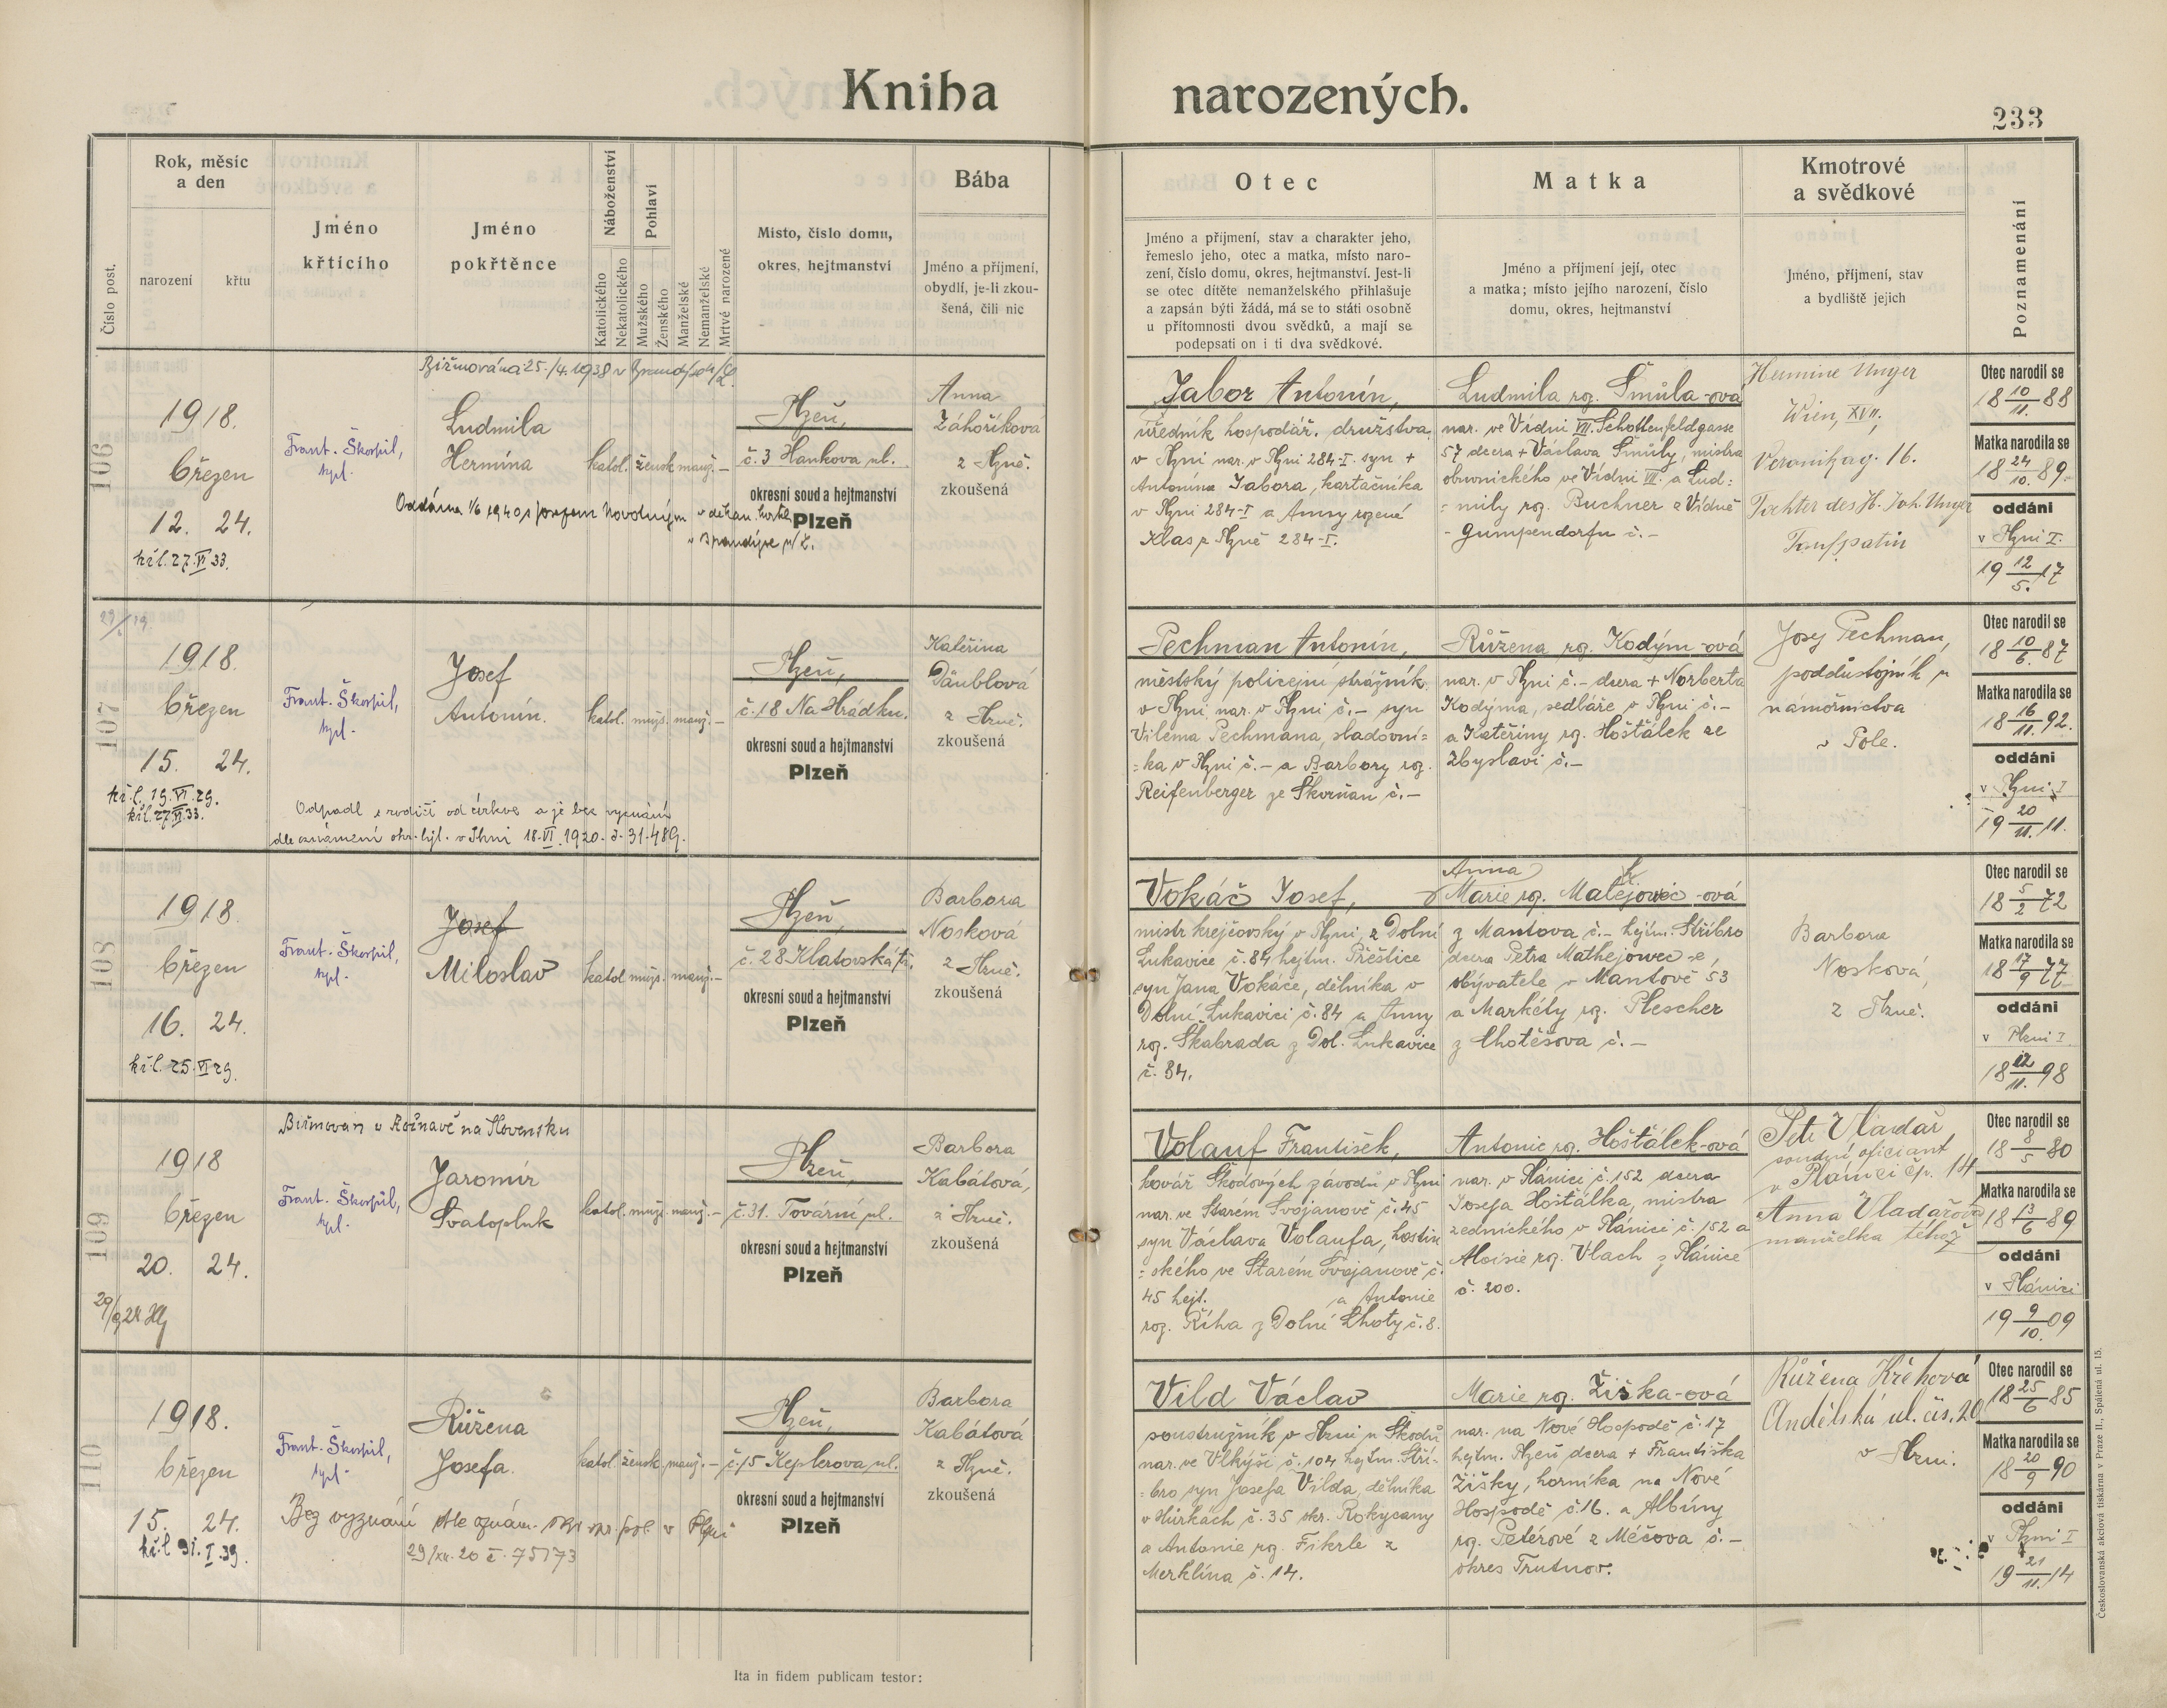 Kniha narozených.
233
Číslo post.
Rok, měsíc
a den
narození
křtu
Jméno
křtícího
Jméno
pokřtěnce
Náboženství
Katolického
Nekatolického
Pohlaví
Mužského
Ženského
Manželské
Nemanželské
Mrtvé narozené
Místo, číslo domu,
okres, hejtmanství
Bába
Jméno a příjmení,
obydlí, je-li zkou-
šená, čili nic
Otec
Jméno a příjmení, stav a charakter jeho,
řemeslo jeho, otec a matka, místo naro-
zení, číslo domu, okres, hejtmanství. Jest-li
se otec dítěte nemanželského přihlašuje
a zapsán býti žádá, má se to státi osobně
u přítomnosti dvou svědků, a mají se
podepsati on i ti dva svědkové.
Matka
Jméno a příjmení její, otec
a matka; místo jejího narození, číslo
domu, okres, hejtmanství
Kmotrové
a svědkové
Jméno, příjmení, stav
a bydliště jejich
Poznamenání
106
1918.
březen
12. 24.
kř.l. 27.VI 33.
Frant. Škorpil,
kpl.
Biřmována 25./4.1938 v
Ludmila
Hermína
Oddána 1/6 1940 s Josefem Novotným v děkan. kostele
v Brandýse n/L.
katol. žensk. manž. —
Plzeň,
č. 3 Hankova ul.
okresní soud a hejtmanství
Plzeň
Anna
Záhoříková
z Plzně.
zkoušená
Tabor Antonín,
úředník hospodář. družstva
v Plzni nar. v Plzni 284-I. syn +
Antonína Tabora, kartáčníka
v Plzni 284-I a Anny rozené
Klas z Plzně 284-I.
Ludmila roz. Šmůla-ová
nar. ve Vídni VII. Schottenfeldgasse
57 dcera + Václava Šmůly, mistra
obuvnického ve Vídni VII. a Lud=
=mily roz. Buchner z Vídně
- Gumpendorfu č. –
Hermine Unger
Wien, XVII,
Veronikag. 16.
Tochter des H. Joh. Unger
Taufpatin
Otec narodil se
18 10/11. 88
Matka narodila se
18 24/10. 89.
oddáni
v Plzni I.
19 12/5. 17
107
1918.
březen
15. 24.
kř.l. 19.VI.29.
kř.l. 27.VI.33.
Frant. Škorpil,
kpl.
Josef
Antonín.
Odpadl s rodiči od církve a je bez vyznání
dle oznámení okr. hejt. v Plzni 18.VI.1920. č. 31.489.
katol. mužs. manž. —
Plzeň,
č. 18 Na Hrádku.
okresní soud a hejtmanství
Plzeň
Kateřina
Däublová
z Plzně.
zkoušená
Pechman Antonín,
městský policejní strážník
v Plzni nar. v Plzni č. – syn
Viléma Pechmana, sladovní=
=ka v Plzni č. – a Barbory roz.
Reifenberger ze Škvrňan č. –
Růžena roz. Kodým-ová
nar. v Plzni č. – dcera + Norberta
Kodýma, sedláře v Plzni č. –
a Kateřiny roz. Hošťálek ze
Zbyslavi č. –
Josef Pechman,
poddůstojník u
námořnictva
v Pole.
Otec narodil se
18 10/6. 87
Matka narodila se
18 16/11. 92.
oddáni
v Plzni I
19 20/11. 11.
108
1918.
březen
16. 24.
kř.l. 25.VI 29.
Frant. Škorpil,
kpl.
Josef
Miloslav
katol. mužs. manž. —
Plzeň,
č. 28 Klatovská tř.
okresní soud a hejtmanství
Plzeň
Barbora
Nosková
z Plzně.
zkoušená
Vokáč Josef,
mistr krejčovský v Plzni, z Dolní
Lukavice č. 84 hejtm. Přeštice
syn Jana Vokáče, dělníka v
Dolní Lukavici č. 84 a Anny
roz. Škabrada z Dol. Lukavice
č. 84.
Anna
Marie roz. Matějowec-ová
z Mantova č. – hejtm. Stříbro
dcera Petra Mathejowec-e,
obývatele v Mantově 53
a Markéty roz. Plescher
z Chotěšova č. –
Barbora
Nosková,
z Plzně.
Otec narodil se
18 5/2 72
Matka narodila se
18 17/9 77.
oddáni
v Plzni I.
18 12/11. 98
109
1918
březen
20. 24.
Frant. Škorpil,
kpl.
Biřmován v Rožnavě na Slovensku
Jaromír
Svatopluk
katol. mužs. manž. —
Plzeň,
č. 31. Tovární ul.
okresní soud a hejtmanství
Plzeň
Barbora
Kabátová,
z Plzně.
zkoušená
Volauf František,
kovář Škodových závodů v Plzni
nar. ve Starém Svojanově č. 45
syn Václava Volaufa, hostin
=ského ve Starém Svojanově č.
45 hejt. a Antonie
roz. Říha z Dolní Lhoty č. 8.
Antonie roz. Hošťálek-ová
nar. v Plánici č. 152 dcera
Josefa Hošťálka, mistra
zednického v Plánici č. 152 a
Aloisie roz. Vlach z Plánice
č. 200.
Petr Vladař,
soudní oficiant
v Plánici čp. 14
Anna Vladařová
manželka téhož
Otec narodil se
18 8/5 80
Matka narodila se
18 13/6 89
oddáni
v Plánici
19 9/10. 09
110
1918.
březen
15. 24.
kř.l. 31.I.39.
Frant. Škorpil,
kpl.
Růžena
Josefa.
Bez vyznání dle oznám. okr. spr. pol. v Plzni
29/XII. 20 č. 75173
katol. žensk. manž. —
Plzeň,
č. 15 Keplerova ul.
okresní soud a hejtmanství
Plzeň
Barbora
Kabátová
z Plzně.
zkoušená
Vild Václav
soustružník v Plzni u Škodů
nar. ve Vlkýši č. 104 hejtm. Stří-
=bro syn Josefa Vilda, dělníka
v Hůrkách č. 35 okr. Rokycany
a Antonie roz. Fikrle z
Merklína č. 14.
Marie roz. Žižka-ová
nar. na Nové Hospodě č. 17
hejtm. Plzeň dcera + Františka
Žižky, horníka na Nové
Hospodě č. 16. a Albíny
roz. Petérové z Méčova č. –
okres Trutnov.
Růžena Křehová
Andělská ul. čís. 20
v Plzni.
Otec narodil se
18 25/6 85
Matka narodila se
18 20/9 90
oddáni
v Plzni I
19 21/11. 14
Ita in fidem publicam testor:
Českoslovanská akciová tiskárna v Praze II., Spálená ul. 15.